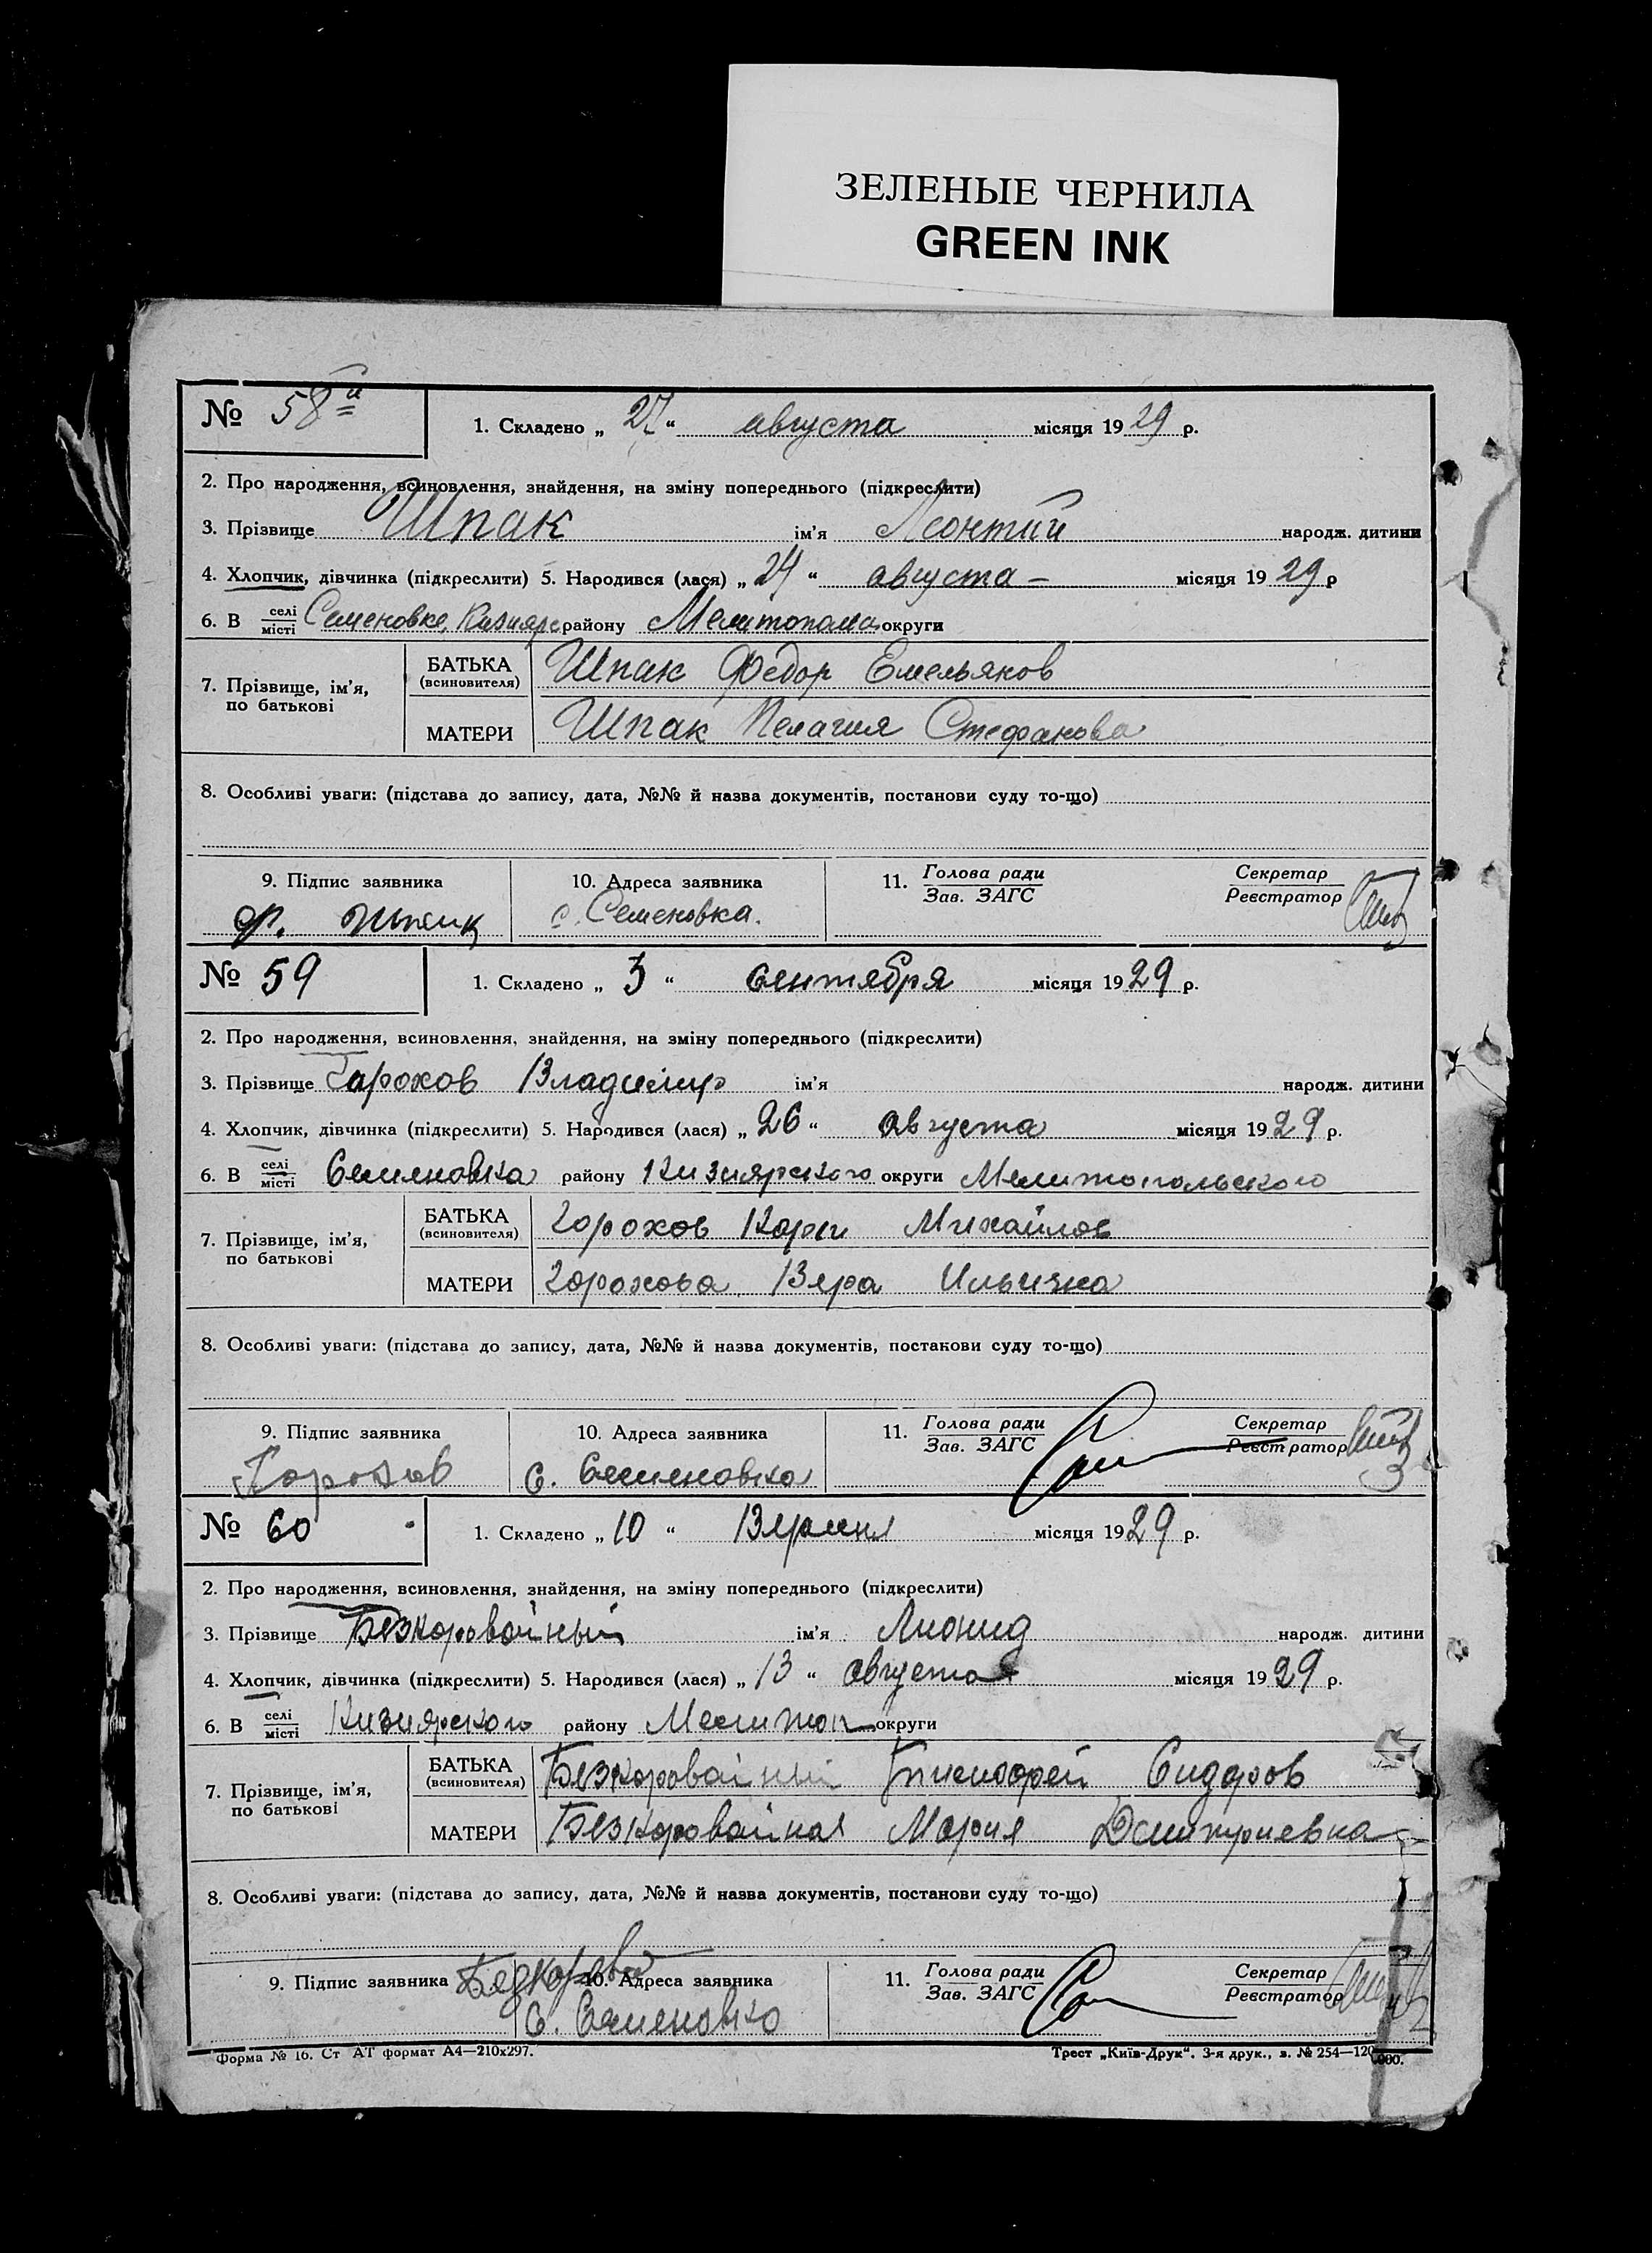 ЗЕЛЕНЫЕ ЧЕРНИЛА
GREEN INK
№ 58й 1. Складено „27“ августа місяця 1929 р.
2. Про народження, всиновлення, знайдення, на зміну попереднього (підкреслити)
3. Прізвище Шпак ім’я Леонтий народж. дитини
4. Хлопчик, дівчинка (підкреслити) 5. Народився (лася) „24“ августа – місяця 1929 р
6. В селі/місті Семеновке, Кизияр району Мелитопол округи
7. Прізвище, ім’я, по батькові БАТЬКА (всиновителя) Шпак Федор Емельянов
МАТЕРИ Шпак Пелагия Стефанова
8. Особливі уваги: (підстава до запису, дата, №№ й назва документів, постанови суду то-що)
9. Підпис заявника 10. Адреса заявника 11. Голова ради/Зав. ЗАГС Секретар/Реєстратор
Ф. Шпак с. Семеновка.
№ 59 1. Складено „3“ сентября місяця 1929 р.
2. Про народження, всиновлення, знайдення, на зміну попереднього (підкреслити)
3. Прізвище Гарохов Владимир ім’я народж. дитини
4. Хлопчик, дівчинка (підкреслити) 5. Народився (лася) „26“ августа місяця 1929 р.
6. В селі/місті Семеновка району Кизиярского округи Мелитопольского
7. Прізвище, ім’я, по батькові БАТЬКА (всиновителя) Горохов Михайлов
МАТЕРИ Горохова Вера Ильична
8. Особливі уваги: (підстава до запису, дата, №№ й назва документів, постакови суду то-що)
9. Підпис заявника 10. Адреса заявника 11. Голова ради/Зав. ЗАГС Секретар/Реєстратор
с. Семеновка
№ 60 1. Складено „10“ місяця 1929 р.
2. Про народження, всиновлення, знайдення, на зміну попереднього (підкреслити)
3. Прізвище Безкоровайный ім’я Лионид народж. дитини
4. Хлопчик, дівчинка (підкреслити) 5. Народився (лася) „13“ августа місяця 1929 р.
6. В селі/місті Кизиярского району Мелитоп округи
7. Прізвище, ім’я, по батькові БАТЬКА (всиновителя) Безкоровайный Сидоров
МАТЕРИ Безкоровайная Мария Дмитриевна
8. Особливі уваги: (підстава до запису, дата, №№ й назва документів, постанови суду то-що)
9. Підпис заявника 10. Адреса заявника 11. Голова ради/Зав. ЗАГС Секретар/Реєстратор
с. Семеновка
Форма № 16. Ст АТ формат А4—210х297. Трест „Київ-Друк“. 3-я друк., з. № 254—120.000.